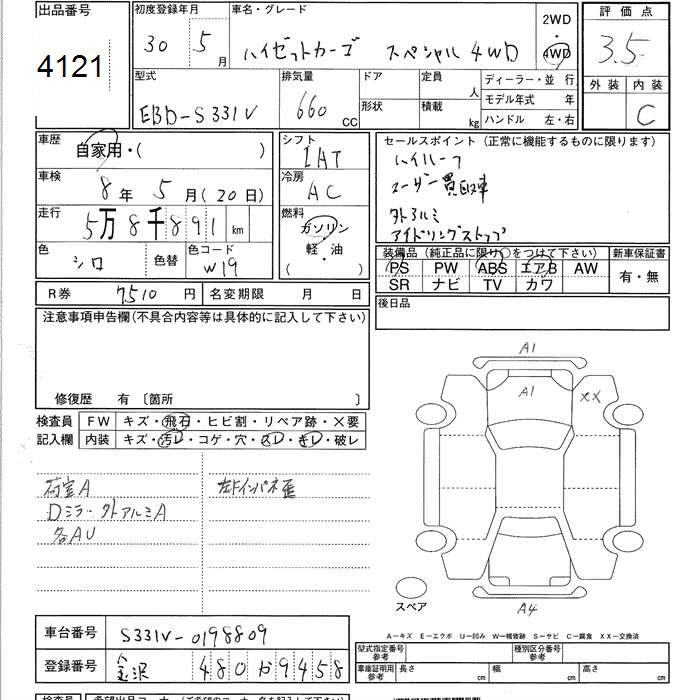 出品番号
4121
初度登録年月
30 5月
車名・グレード
ハイゼットカーゴ スペシャル 4WD
2WD
・
4WD
評価点
3.5
外装 内装
C
型式
EBD-S331V
排気量
660 CC
ドア
形状
定員 人
積載 kg
ディーラー・並行
モデル年式 年
ハンドル 左・右
車歴
自家用・( )
車検
8年 5月(20日)
走行
5万8千891 km
色
シロ
色替
色コード
W19
シフト
IAT
冷房
AC
燃料
ガソリン
・
軽・油
( )
セールスポイント (正常に機能するものに限ります)
ハイルーフ
ユーザー買取車
外アルミ
アイドリングストップ
装備品 (純正品に限り○をつけて下さい)
PS PW ABS エアB AW
SR ナビ TV カワ
新車保証書
有・無
R券 7510円
名変期限 月 日
後日品
注意事項申告欄(不具合内容等は具体的に記入して下さい)
修復歴 有 〔箇所 〕
検査員
記入欄
FW キズ・飛石・ヒビ割・リペア跡・×要
内装 キズ・汚レ・コゲ・穴・スレ・キレ・破レ
荷室A
Dミラー・外アルミA
各AU
左Fインパネ歪
A1
A1
XX
スペア
A4
A-キズ E-エクボ U-凹み W-補修跡 S-サビ C-腐食 XX-交換済
車台番号
S331V-0198809
登録番号
金沢 480か9458
型式指定番号
参考
種別区分番号
参考
車庫証明用
参考
長さ cm
幅 cm
高さ cm